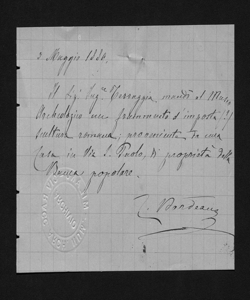 2. Maggio 1886.
Il Sig. Ing.re Terraggia, mandò al Museo
Archeologico un frammento d'imposta di
scultura romana; proveniente da una
Casa in Via S. Paolo, di proprietà della
Banca popolare.